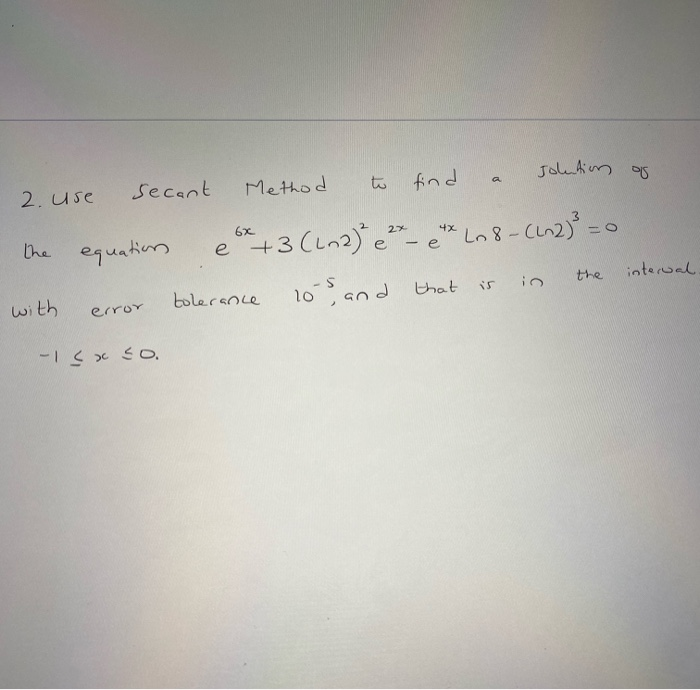 2. Use Secant Method to find a solution of
the equation e^{6x} + 3(Ln2)^2 e^{2x} - e^{4x} Ln8 - (Ln2)^3 = 0
with error tolerance 10^{-5}, and that is in the interval
-1 ≤ x ≤ 0.